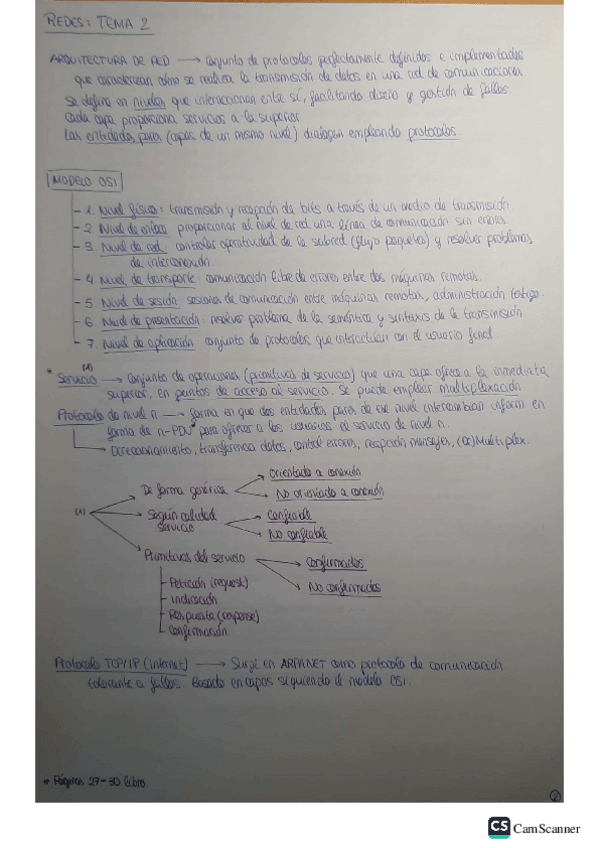 REDES: TEMA 2
ARQUITECTURA DE RED → Conjunto de protocolos perfectamente definidos e implementados
que caracterizan cómo se realiza la transmisión de datos en una red de comunicaciones
Se define en niveles que interaccionan entre sí, facilitando diseño y gestión de fallos.
Cada capa proporciona servicios a la superior
Las entidades pares (capas de un mismo nivel) dialogan empleando protocolos.
MODELO OSI
- 1. Nivel físico: transmisión y recepción de bits a través de un medio de transmisión
- 2. Nivel de enlace: proporcionar al nivel de red una línea de comunicación sin errores
- 3. Nivel de red: controlar operatividad de la subred (flujo paquetes) y resolver problemas
de interconexión.
- 4. Nivel de transporte: comunicación libre de errores entre dos máquinas remotas.
- 5. Nivel de sesión: sesiones de comunicación entre máquinas remotas, administración testigo.
- 6. Nivel de presentación: resolver problema de la semántica y sintaxis de la transmisión
- 7. Nivel de aplicación: conjunto de protocolos que interactúan con el usuario final.
(1)
* Servicio → Conjunto de operaciones (primitivas de servicio) que una capa ofrece a la inmediata
superior, en puntos de acceso al servicio. Se puede emplear multiplexación
Protocolo de nivel n → forma en que dos entidades pares de ese nivel intercambian inform en
forma de n-PDU para ofrecer a los usuarios el servicio de nivel n.
→ Direccionamiento, transferencia datos, control errores, mensajes, (De)Multiplex.
(1)
De forma genérica
Orientado a conexión
No orientado a conexión
Según calidad servicio
Confiable
No confiable
Primitivas del servicio
Confirmados
No confirmados
- Petición (request)
- Indicación
- Respuesta (response)
- Confirmación
Protocolo TCP/IP (internet) → Surge en ARPANET como protocolo de comunicación
tolerante a fallos. Basado en capas siguiendo el modelo OSI.
* Páginas 27-30 libro
CS CamScanner